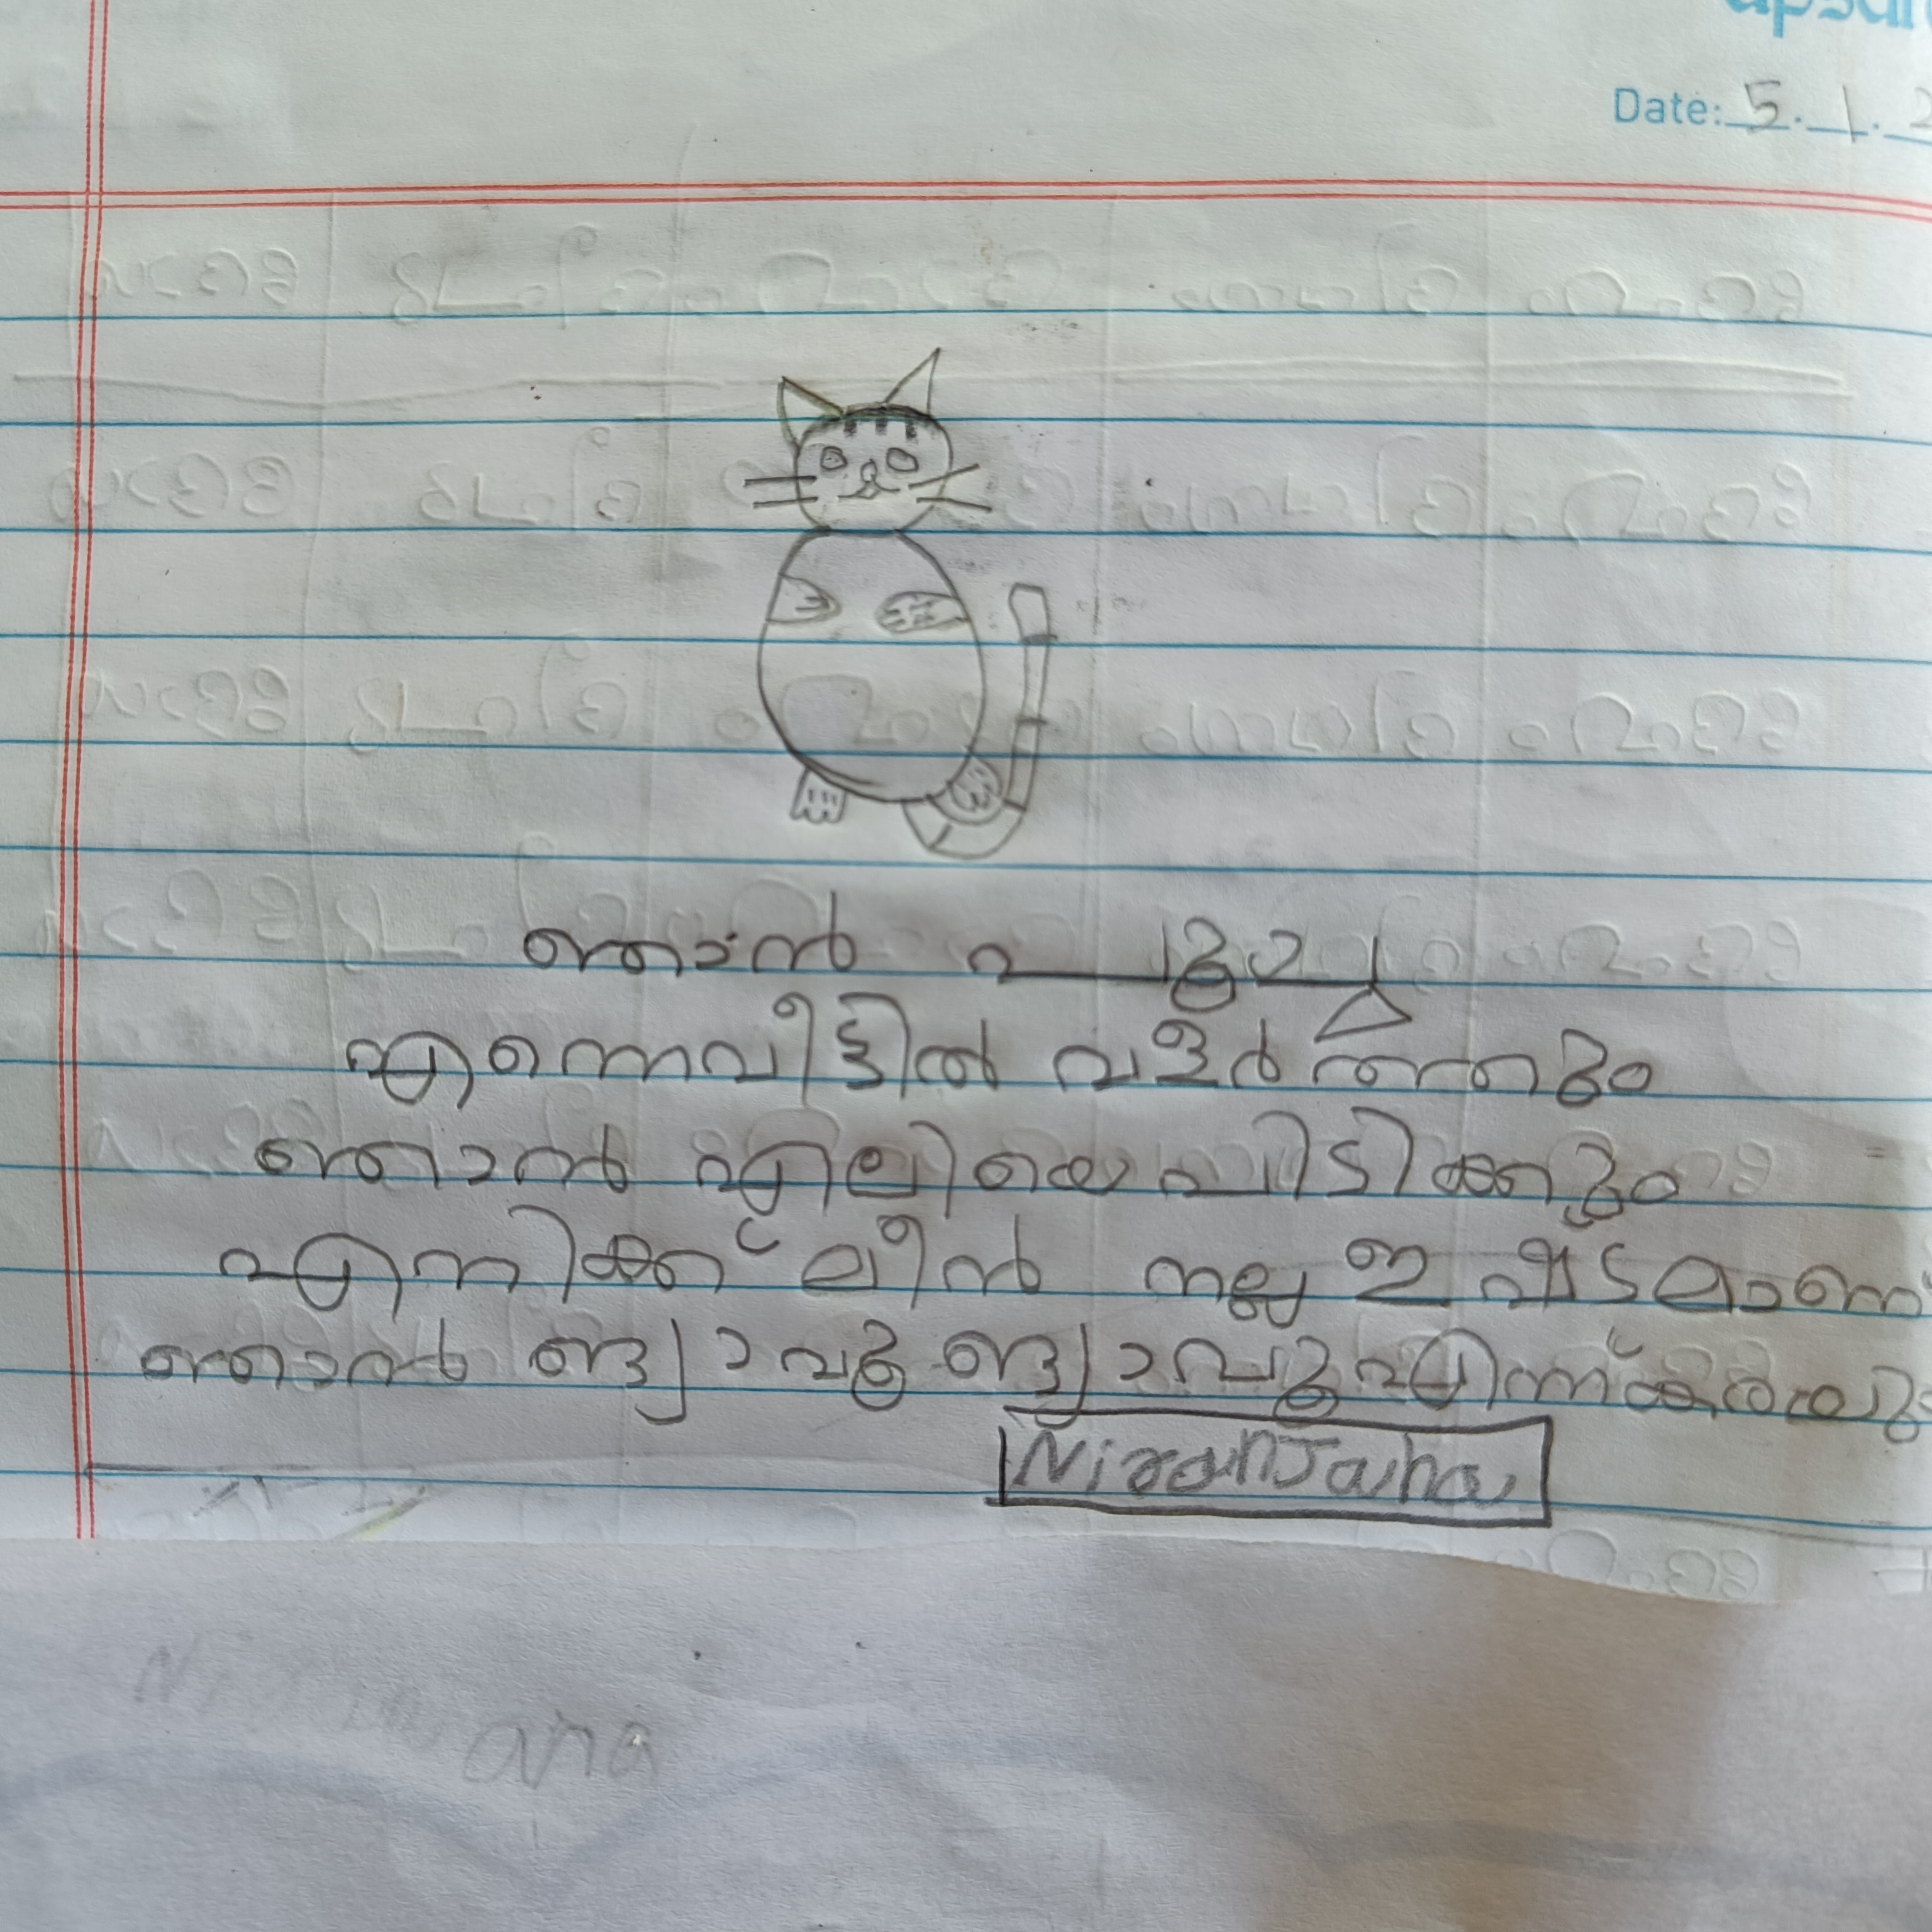 Date: 5.1.2
ഞാൻ പൂച്ച
എന്നെവീട്ടിൽ വളർത്തും
ഞാൻ എലിയെ പിടിക്കും
എനിക്ക് മീൻ നല്ല ഇഷ്ടമാണ്
ഞാൻ ങ്യാവൂ ങ്യാവൂ എന്ന് കരയു
Niranjana
ana